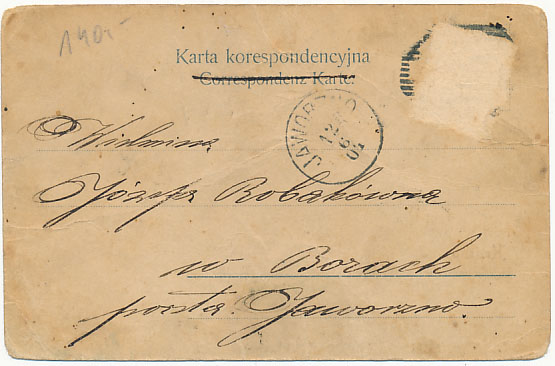 140.-
Karta korespondencyjna
Correspondenz-Karte.
JAWORZNO
12 6 01
Wielmożna
Józefa Robakówna
w Borach
poczta Jaworzno.